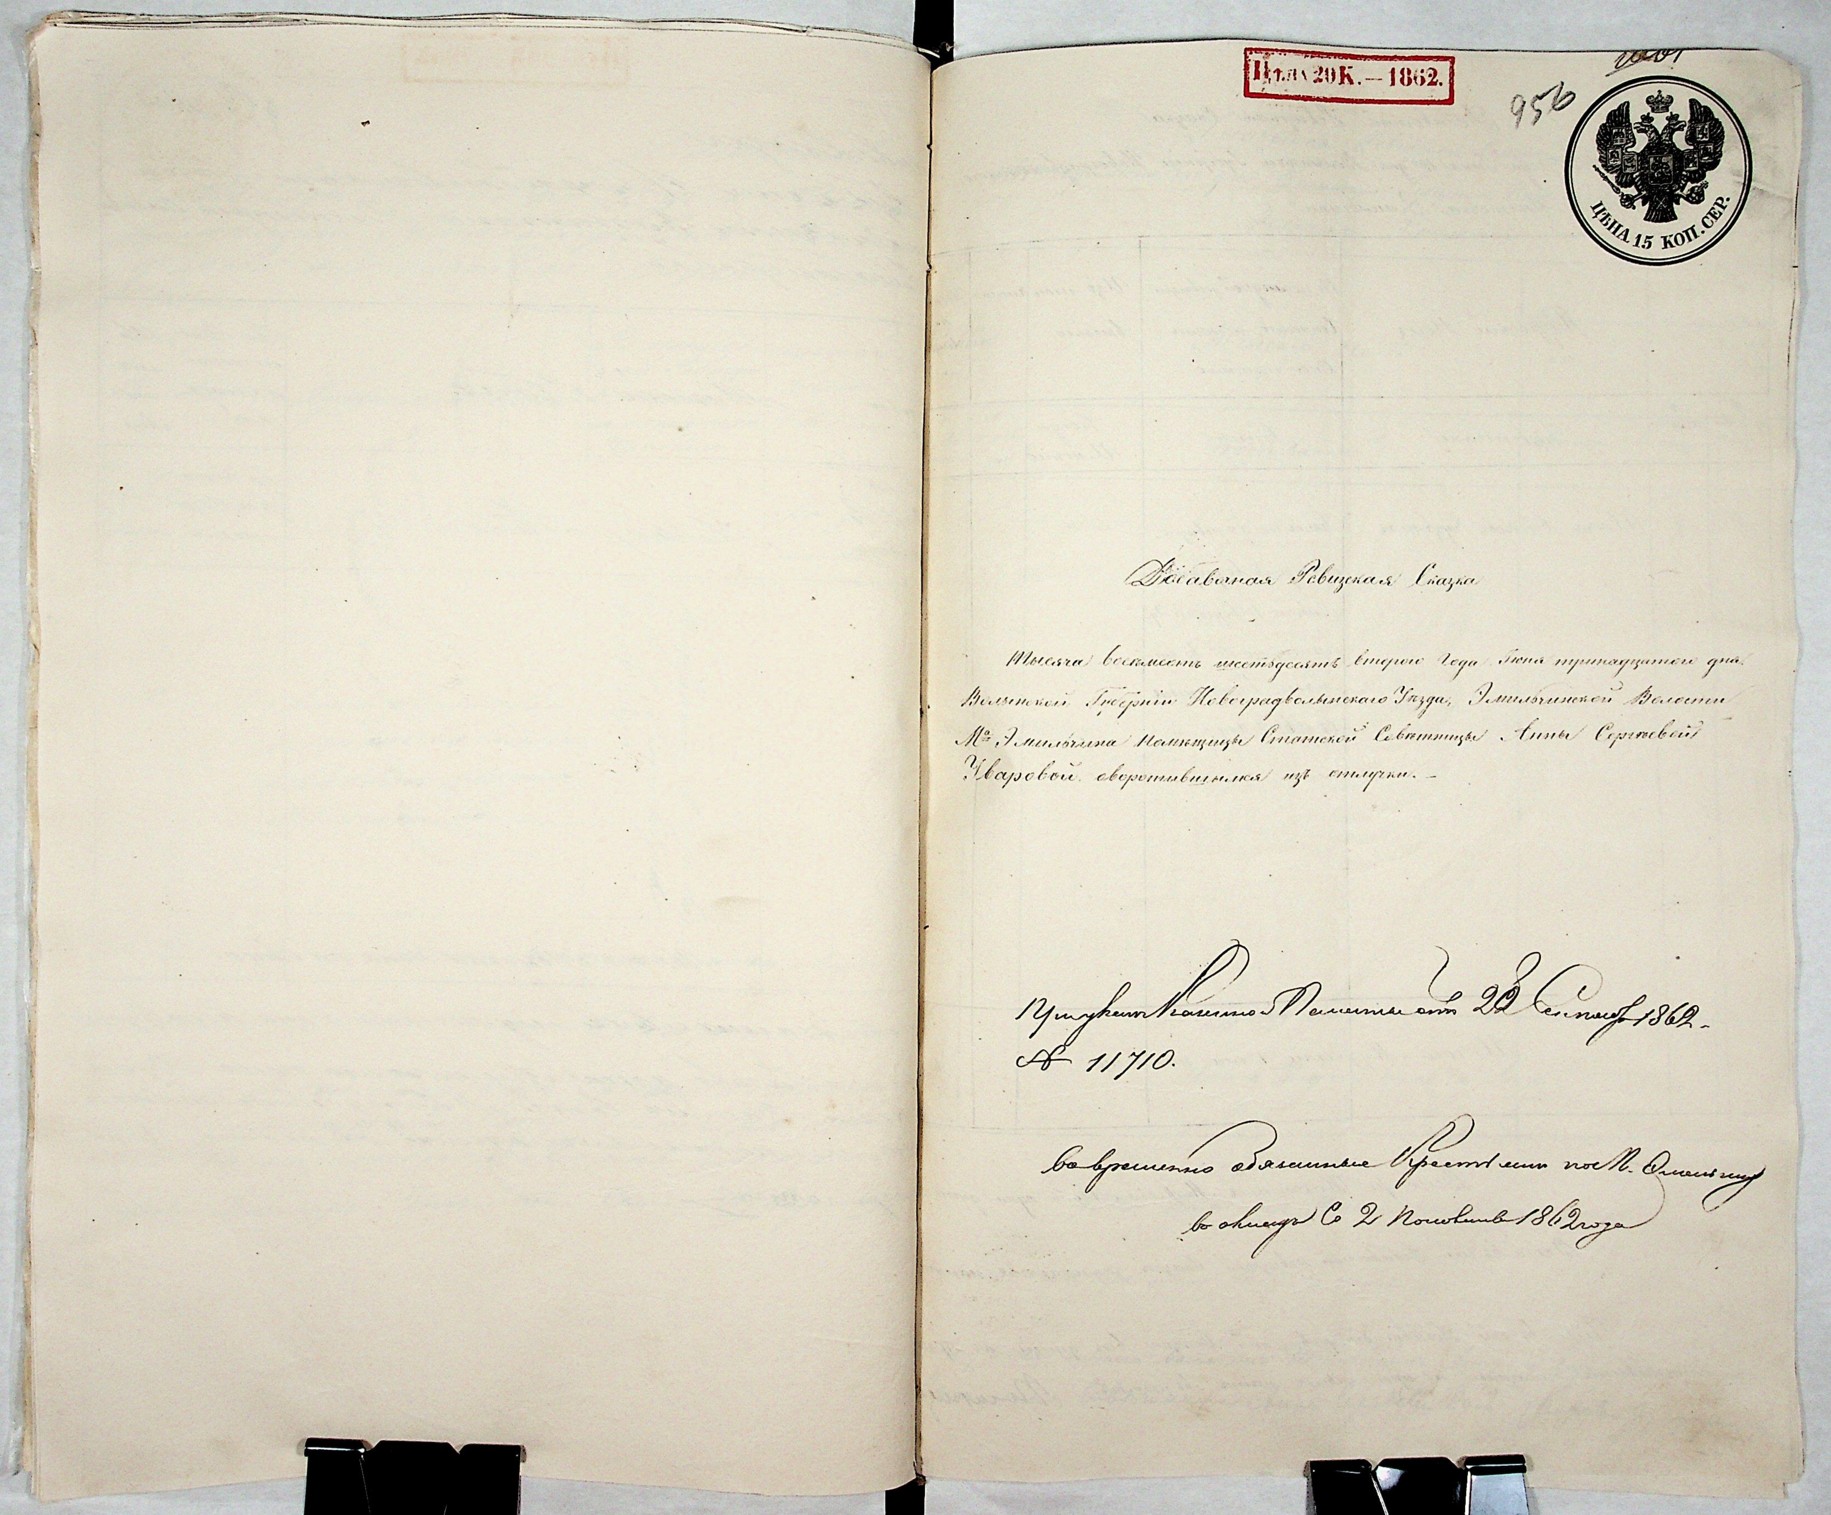 Цѣна 20 К. — 1862.
956
ЦѢНА 15 КОП. СЕР.
Добавочная Ревизская Сказка
Тысяча восемьсотъ шестьдесятъ втораго года Іюня тринадцатого дня
Волынской Губерніи Новоградволынскаго Уѣзда, Эмильчинской Волости
Мᵃ Эмильчина помѣщицы Статской Совѣтницы Анны Сергѣевой
Уваровой оворотившымся изъ отлучки. —
Казенной Палаты отъ 28 1862.
№ 11710.
временно обязанные Крестьяне по М.
въ окладъ Со 2 Половины 1862 года